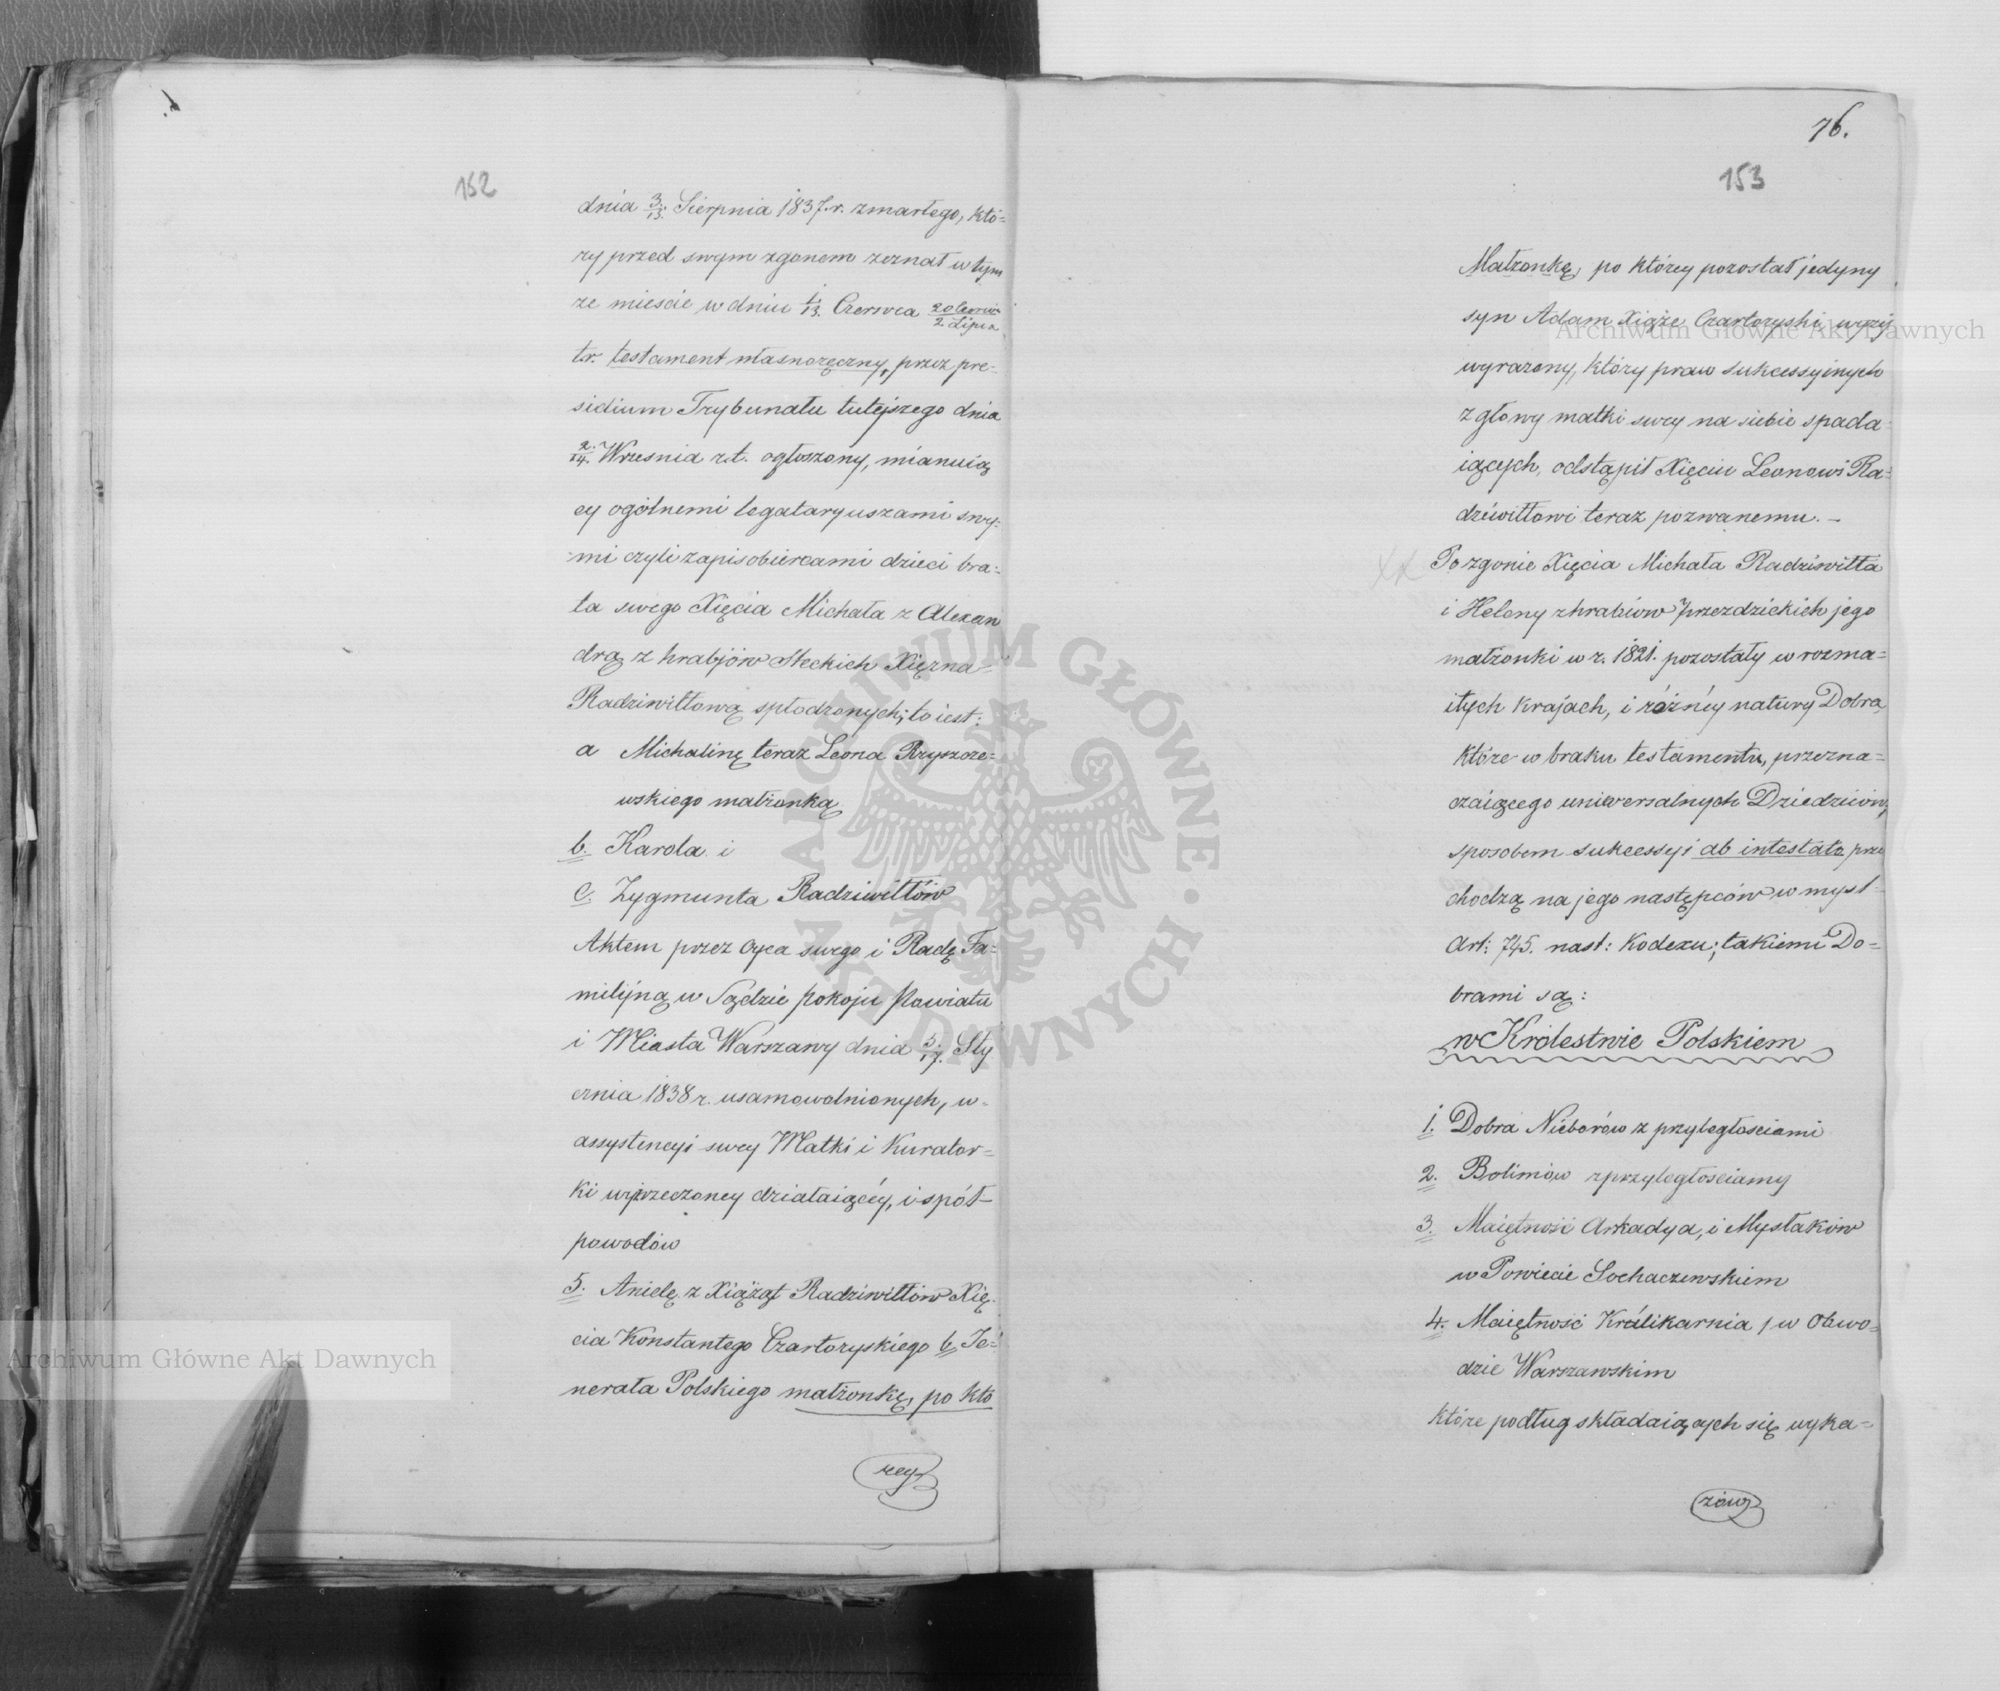 152
dnia 3/13. Sierpnia 1837. r. zmarłego, któ=
ry przed swym zgonem zeznał w tym
że mieście w dniu 1/13. Czerwca 20 Czerwca/2 Lipca
t.r. testament własnoręczny, przez pre=
sidium Trybunału tutejszego dnia
2/14. Wrzesnia r.t. ogłoszony, mianuią
cy ogólnemi legataryuszami swy=
mi czyli zapisobiercami dzieci bra=
ta swego Xięcia Michała z Alexan
drą z hrabjów Steckich Xiężną
Radziwiłłową spłodzonych; to iest:
a Michalinę teraz Leona Rzyszcze=
wskiego małżonką
b. Karola i
c. Zygmunta Radziwiłłów
Aktem przez Oyca swego i Radę Fa=
milijną w Sądzie pokoju Powiatu
i Miasta Warszawy dnia 5/17. Sty
cznia 1838 r. usamowolnionych, w=
assystencyi swey Matki i Kurator=
ki wyżrzeczoney działaiącéy, i spół
powodów
5. Anielę z Xiążąt Radziwiłłów Xię
cia Konstantego Czartoryskiego b. Je=
nerała Polskiego małżonkę, po któ
rey
76.
153
Małżonkę, po którey pozostał jedyny
syn Adam Xiąże Czartoryski, wyżéj
wyrażony, który praw sukcessyinych
z głowy matki swey na siebie spada=
iących, odstąpił Xięciu Leonowi Ra=
dziwiłłowi teraz pozwanemu. —
XX Po zgonie Xięcia Michała Radziwiłła
i Heleny z hrabiów Przezdzieckich jego
małżonki w r. 1821. pozostały w rozma=
itych krajach, i różnéy natury Dobra,
które w braku testamentu, przezna=
czaiącego uniwersalnych Dziedziców,
sposobem sukcessyi ab intestato prze
chodzą na jego następców w myśl
Art: 745. nast: Kodexu; takiemi Do=
brami są:
w Królestwie Polskiem
1. Dobra Nieborów z przyległościami
2. Bolimów z przyległościamy
3. Maiętność Arkadya, i Mysłaków
w Powiecie Sochaczewskiem
4. Maiętność Królikarnia w Obwo=
dzie Warszawskim
które podług składaiących się wyka=
zów
Archiwum Główne Akt Dawnych
Archiwum Główne Akt Dawnych
ARCHIWUM GŁÓWNE · AKT DAWNYCH